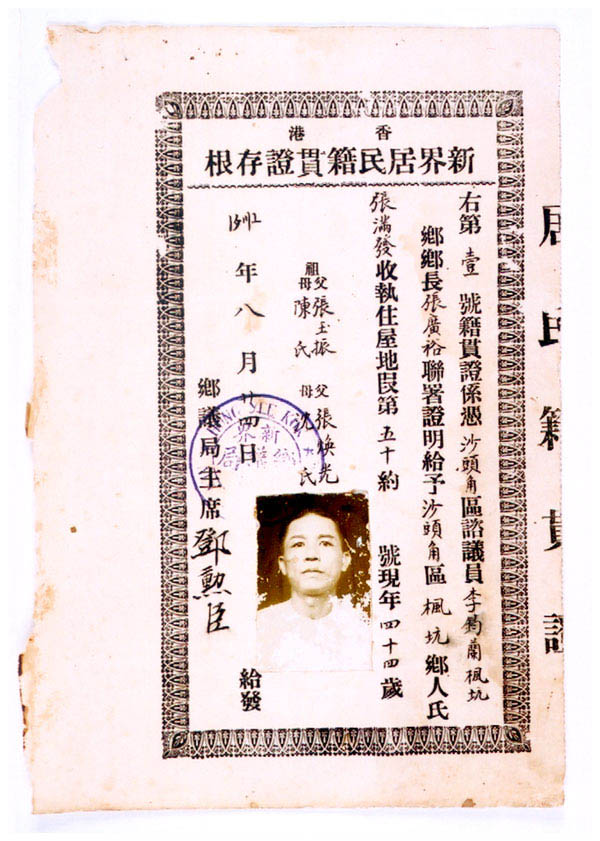 香港
新界居民籍貫證存根
右第壹號籍貫證係憑沙頭角區諮議員李鈞蘭楓坑
鄉鄉長張廣裕聯署證明給予沙頭角區楓坑鄉人氏
張滿發收執住屋地段第五十約 號現年四十四歲
祖父張玉振 父張煥光
祖母陳氏 母沈氏
年八月廿四日
鄉議局主席鄧勲臣
給發
HEUNG YEE KOK
新界
鄉議局
居民籍貫證